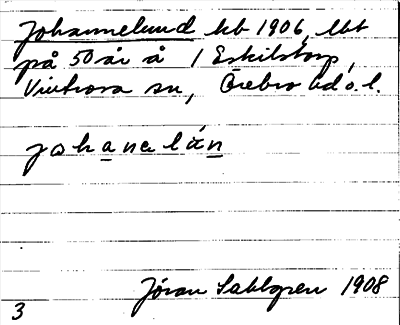 Johannelund hb 1906, lbt
på 50 år å 1 Eskilstorp,
Vintrosa sn, Örebro hd ö.l.
johanelún
Jöran Sahlgren 1908
3